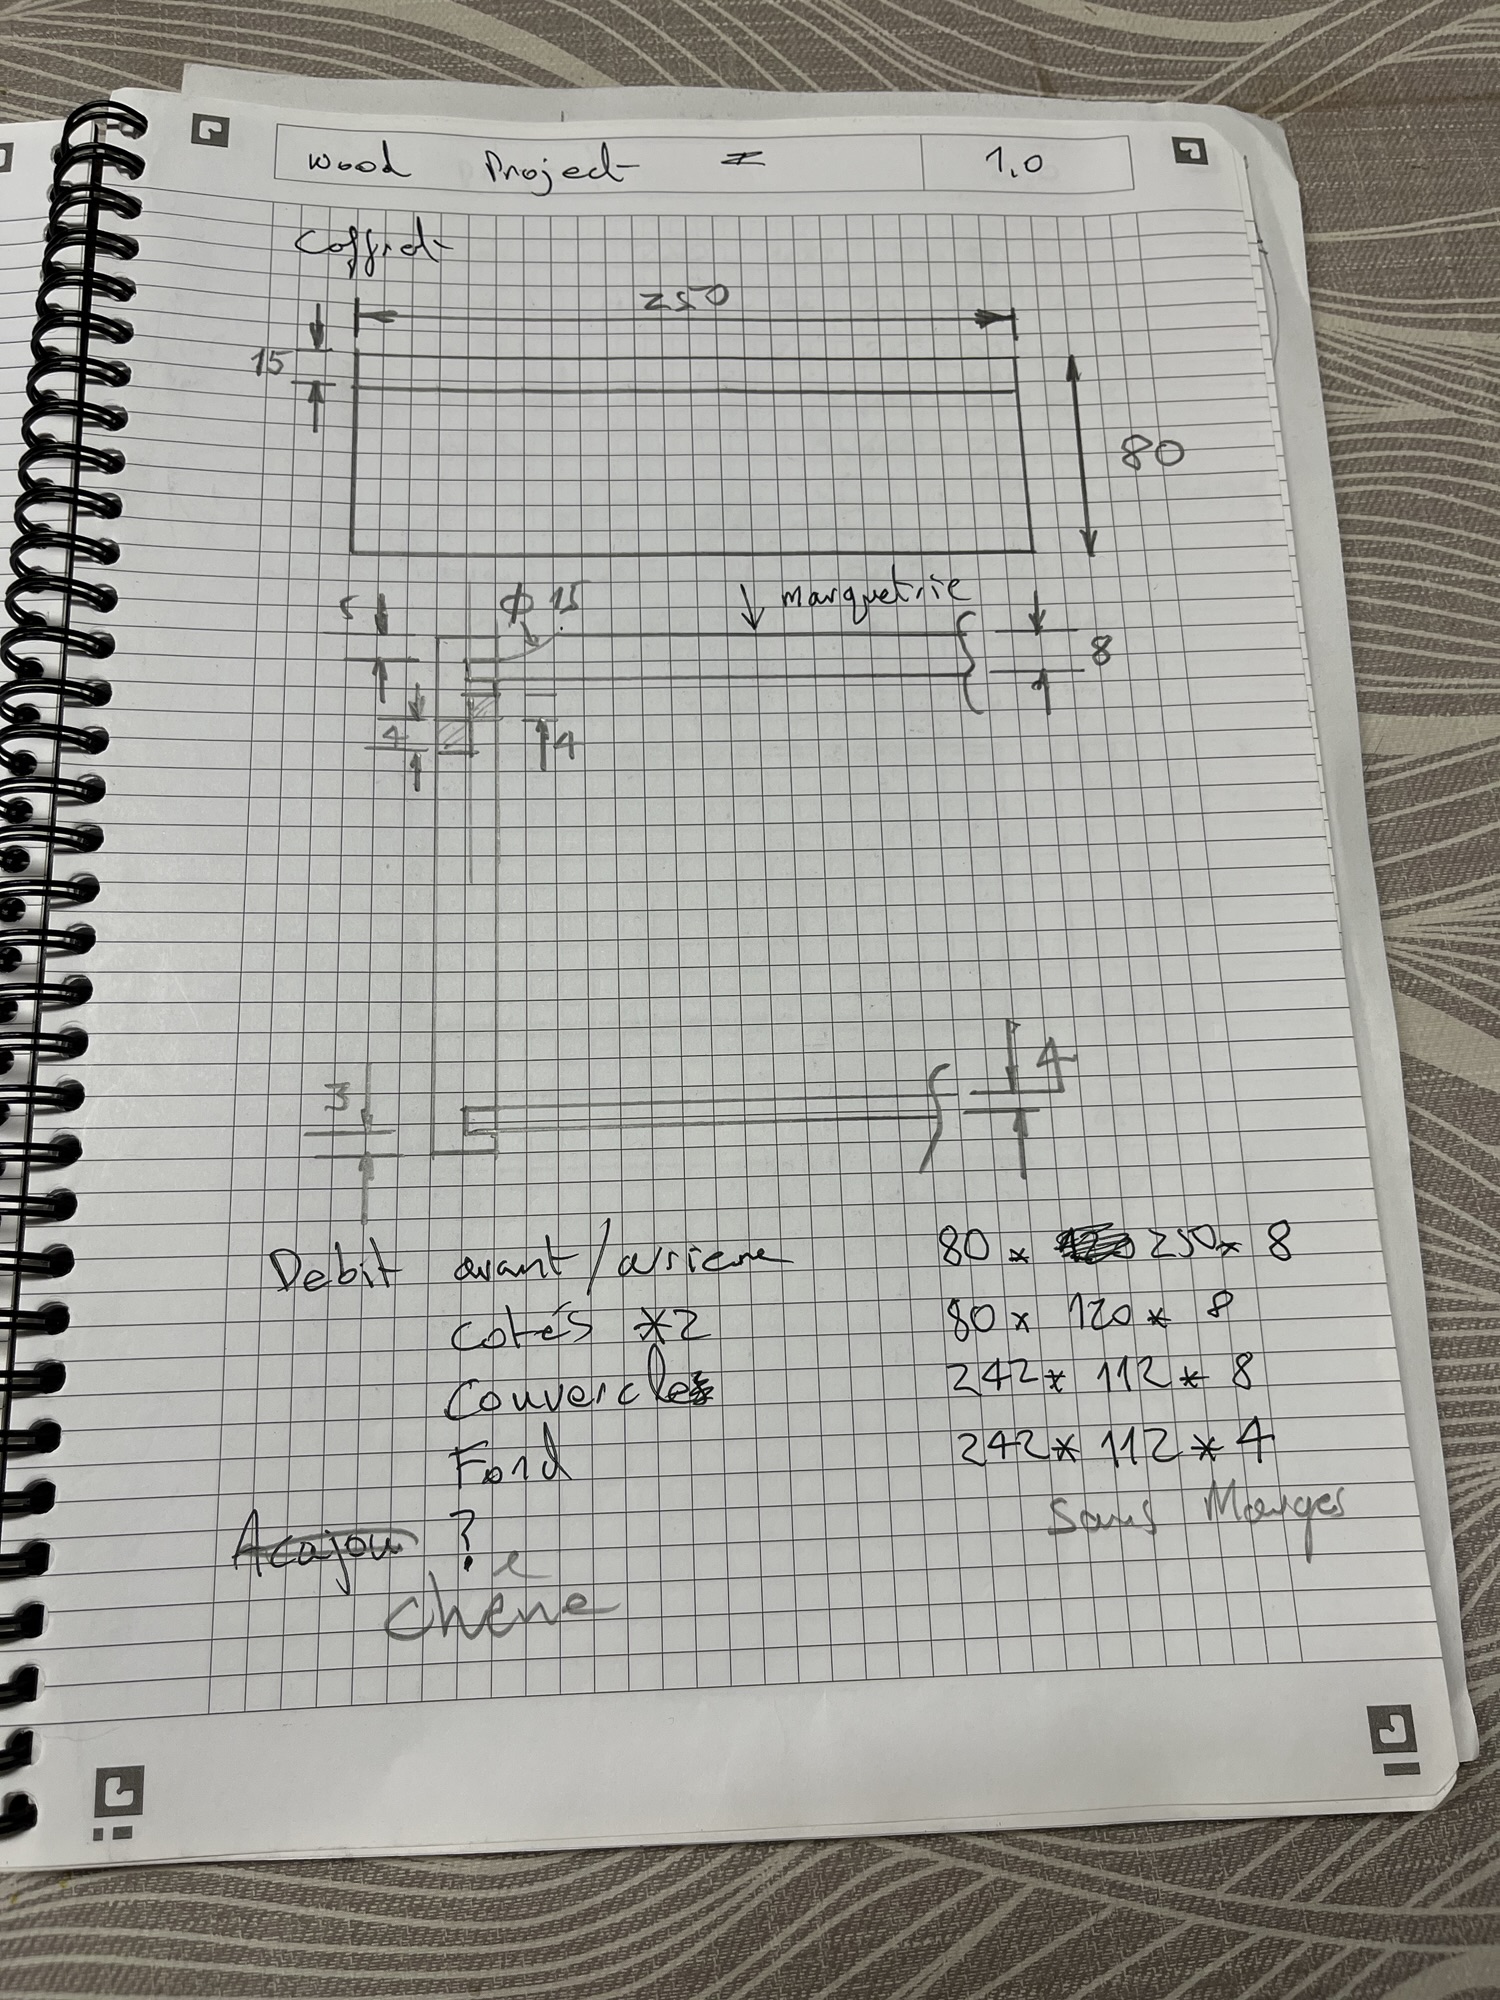 wood Project =
1.0
Coffret
250
15
80
5
φ 15
marquetrie
8
4
4
3
4
Debit avant/arriere 80 * 250 * 8
cotés *2 80 x 120 * 8
Couvercle 242 * 112 * 8
Fond 242 * 112 * 4
Sans Marges
Acajou ?
chêne